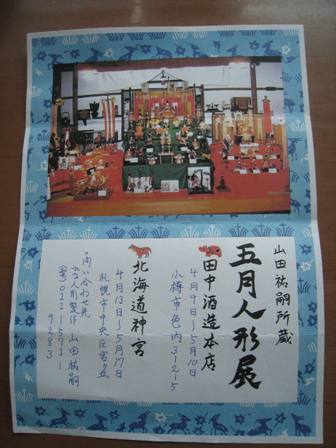 山田祐嗣所蔵
五月人形展
田中酒造本店
4月9日〜5月10日
小樽市色内3-2-5
北海道神宮
4月13日〜5月17日
札幌市中央区宮ヶ丘
問い合わせ先
人形製作 山田祐嗣
(電)011-573-
9283